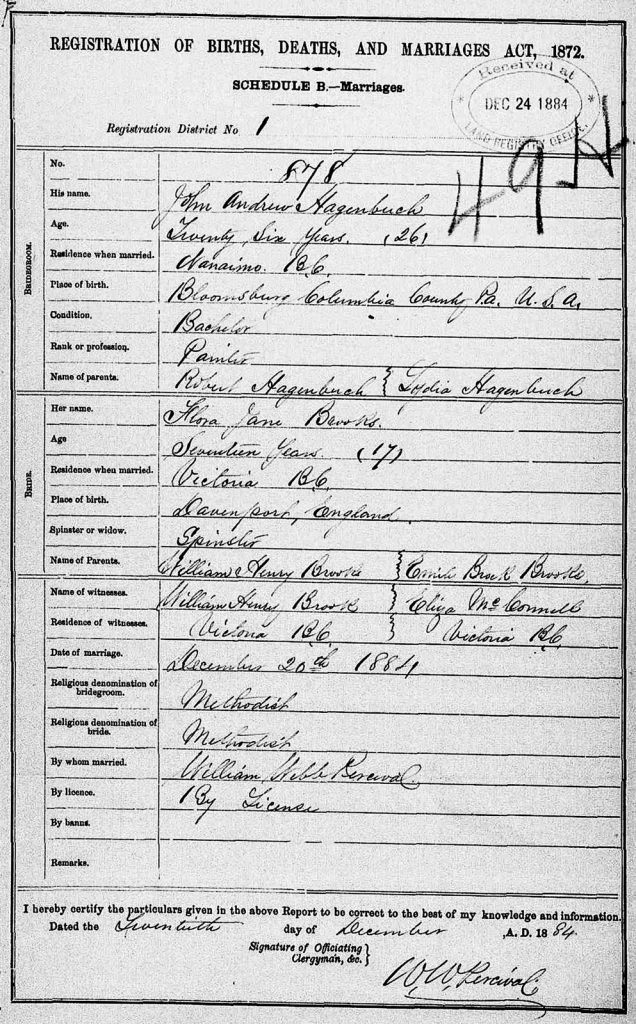 REGISTRATION OF BIRTHS, DEATHS, AND MARRIAGES ACT, 1872.
SCHEDULE B.—Marriages.
Received at
DEC 24 1884
LAND REGISTRY OFFICE
Registration District No 1
No. 878
BRIDEGROOM.
His name. John Andrew Hagenbuch
Age. Twenty Six Years. (26)
Residence when married. Nanaimo. B.C.
Place of birth. Bloomsburg Columbia County Pa. U.S.A.
Condition. Bachelor
Rank or profession. Painter
Name of parents. Robert Hagenbuch } Lydia Hagenbuch
BRIDE.
Her name. Flora Jane Brooks.
Age Seventeen Years. (17)
Residence when married. Victoria B.C.
Place of birth. Davenport, England.
Spinster or widow. Spinster
Name of Parents. William Henry Brooks } Brooks.
Name of witnesses. William Henry Brook } Eliza McConnell
Residence of witnesses. Victoria B.C. } Victoria B.C.
Date of marriage. December 20th 1884
Religious denomination of bridegroom. Methodist
Religious denomination of bride. Methodist
By whom married. William Webb Percival.
By licence. By License
By banns.
Remarks.
I hereby certify the particulars given in the above Report to be correct to the best of my knowledge and information.
Dated the Twentieth day of December ,A. D. 1884.
Signature of Officiating
Clergyman, &c. }
W.W. Percival